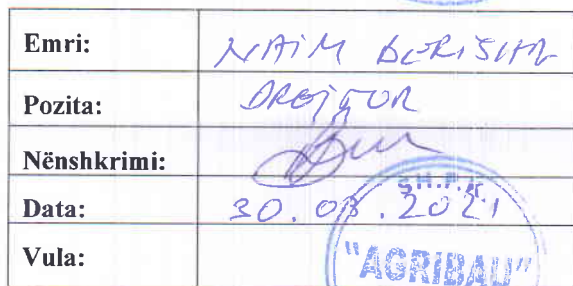 Emri: NAIM BERISHA
Pozita: DREJTOR
Nënshkrimi:
Data: 30.08.2021
Vula:
SH.P.K.
"AGRIBAU"